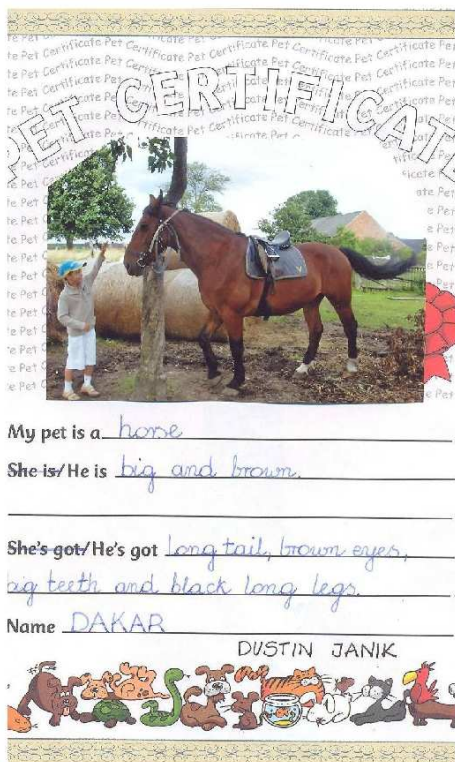 PET CERTIFICATE
My pet is a horse
She is/He is big and brown.
She's got/He's got long tail, brown eyes,
big teeth and black long legs.
Name DAKAR
DUSTIN JANIK